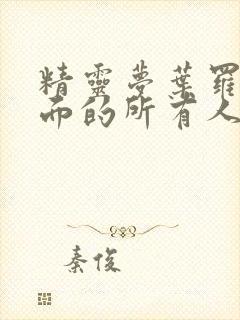 精靈夢葉羅
而的所有人
秦俊